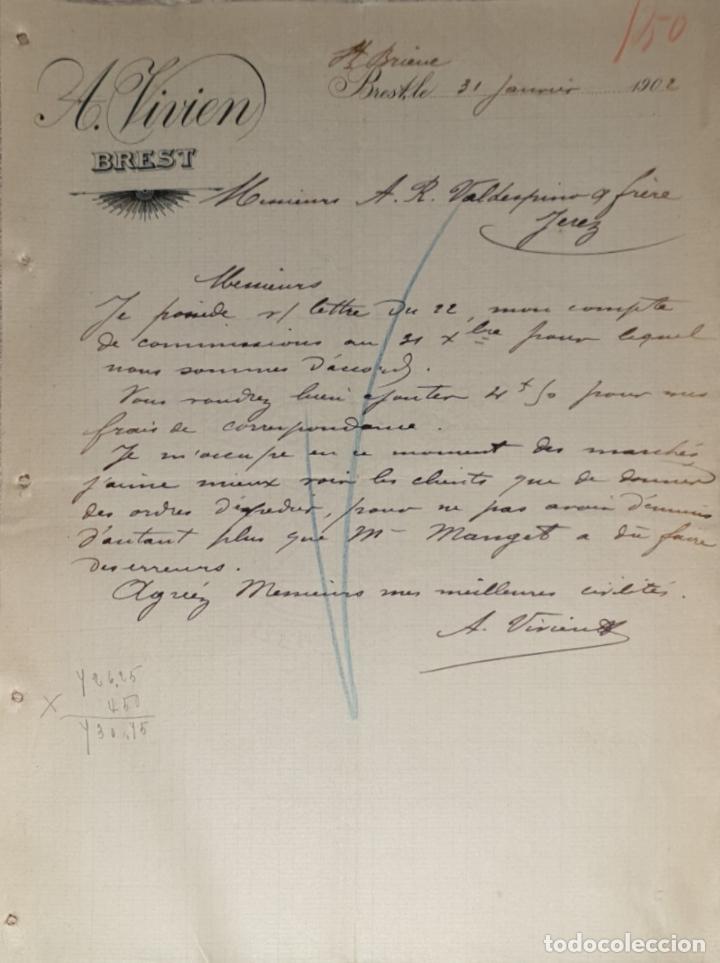 150
A. Vivien
BREST
St Brieuc
Brest, le 31 Janvier 1902
Messieurs A. R. Valdespino & frère
Jerez
Messieurs
Je possède v/ lettre du 22, mon compte
de commissions au 31 Xbre pour lequel
nous sommes d'accord.
Vous voudrez bien ajouter 4f 50 pour mes
frais de correspondance.
Je m'occupe en ce moment des marchés
j'aime mieux voir les clients que de donner
des ordres d'expédier, pour ne pas avoir d'ennuis
d'autant plus que Mr Manget a dû faire
des erreurs.
Agréez Messieurs mes meilleures civilités.
A. Vivien
426,25
X 4 50
430,75
todocoleccion